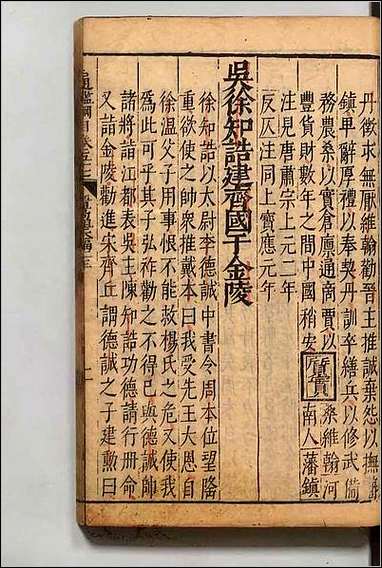 丹徵求無厭維翰勸晉主推誠棄怨以撫
鎮卑辭厚禮以奉契丹訓卒繕兵以修武備
務農桑以實倉廩通商賈以
豐貨財數年之間中國稍安
質實
桑維翰河
南人藩鎮
注見唐肅宗上元二年
反仄注同上寶應元年
吳徐知誥建齊國于金陵
徐知誥以太尉李德誠中書令周本位望隆
重欲使之帥衆推戴本曰我受先王大恩自
徐溫父子用事恨不能救楊氏之危又使我
為此可乎其子弘祚勸之不得已與德誠帥
諸將詣江都表吳主陳知誥功德請行冊命
又詣金陵勸進宋齊丘謂德誠之子建勳曰